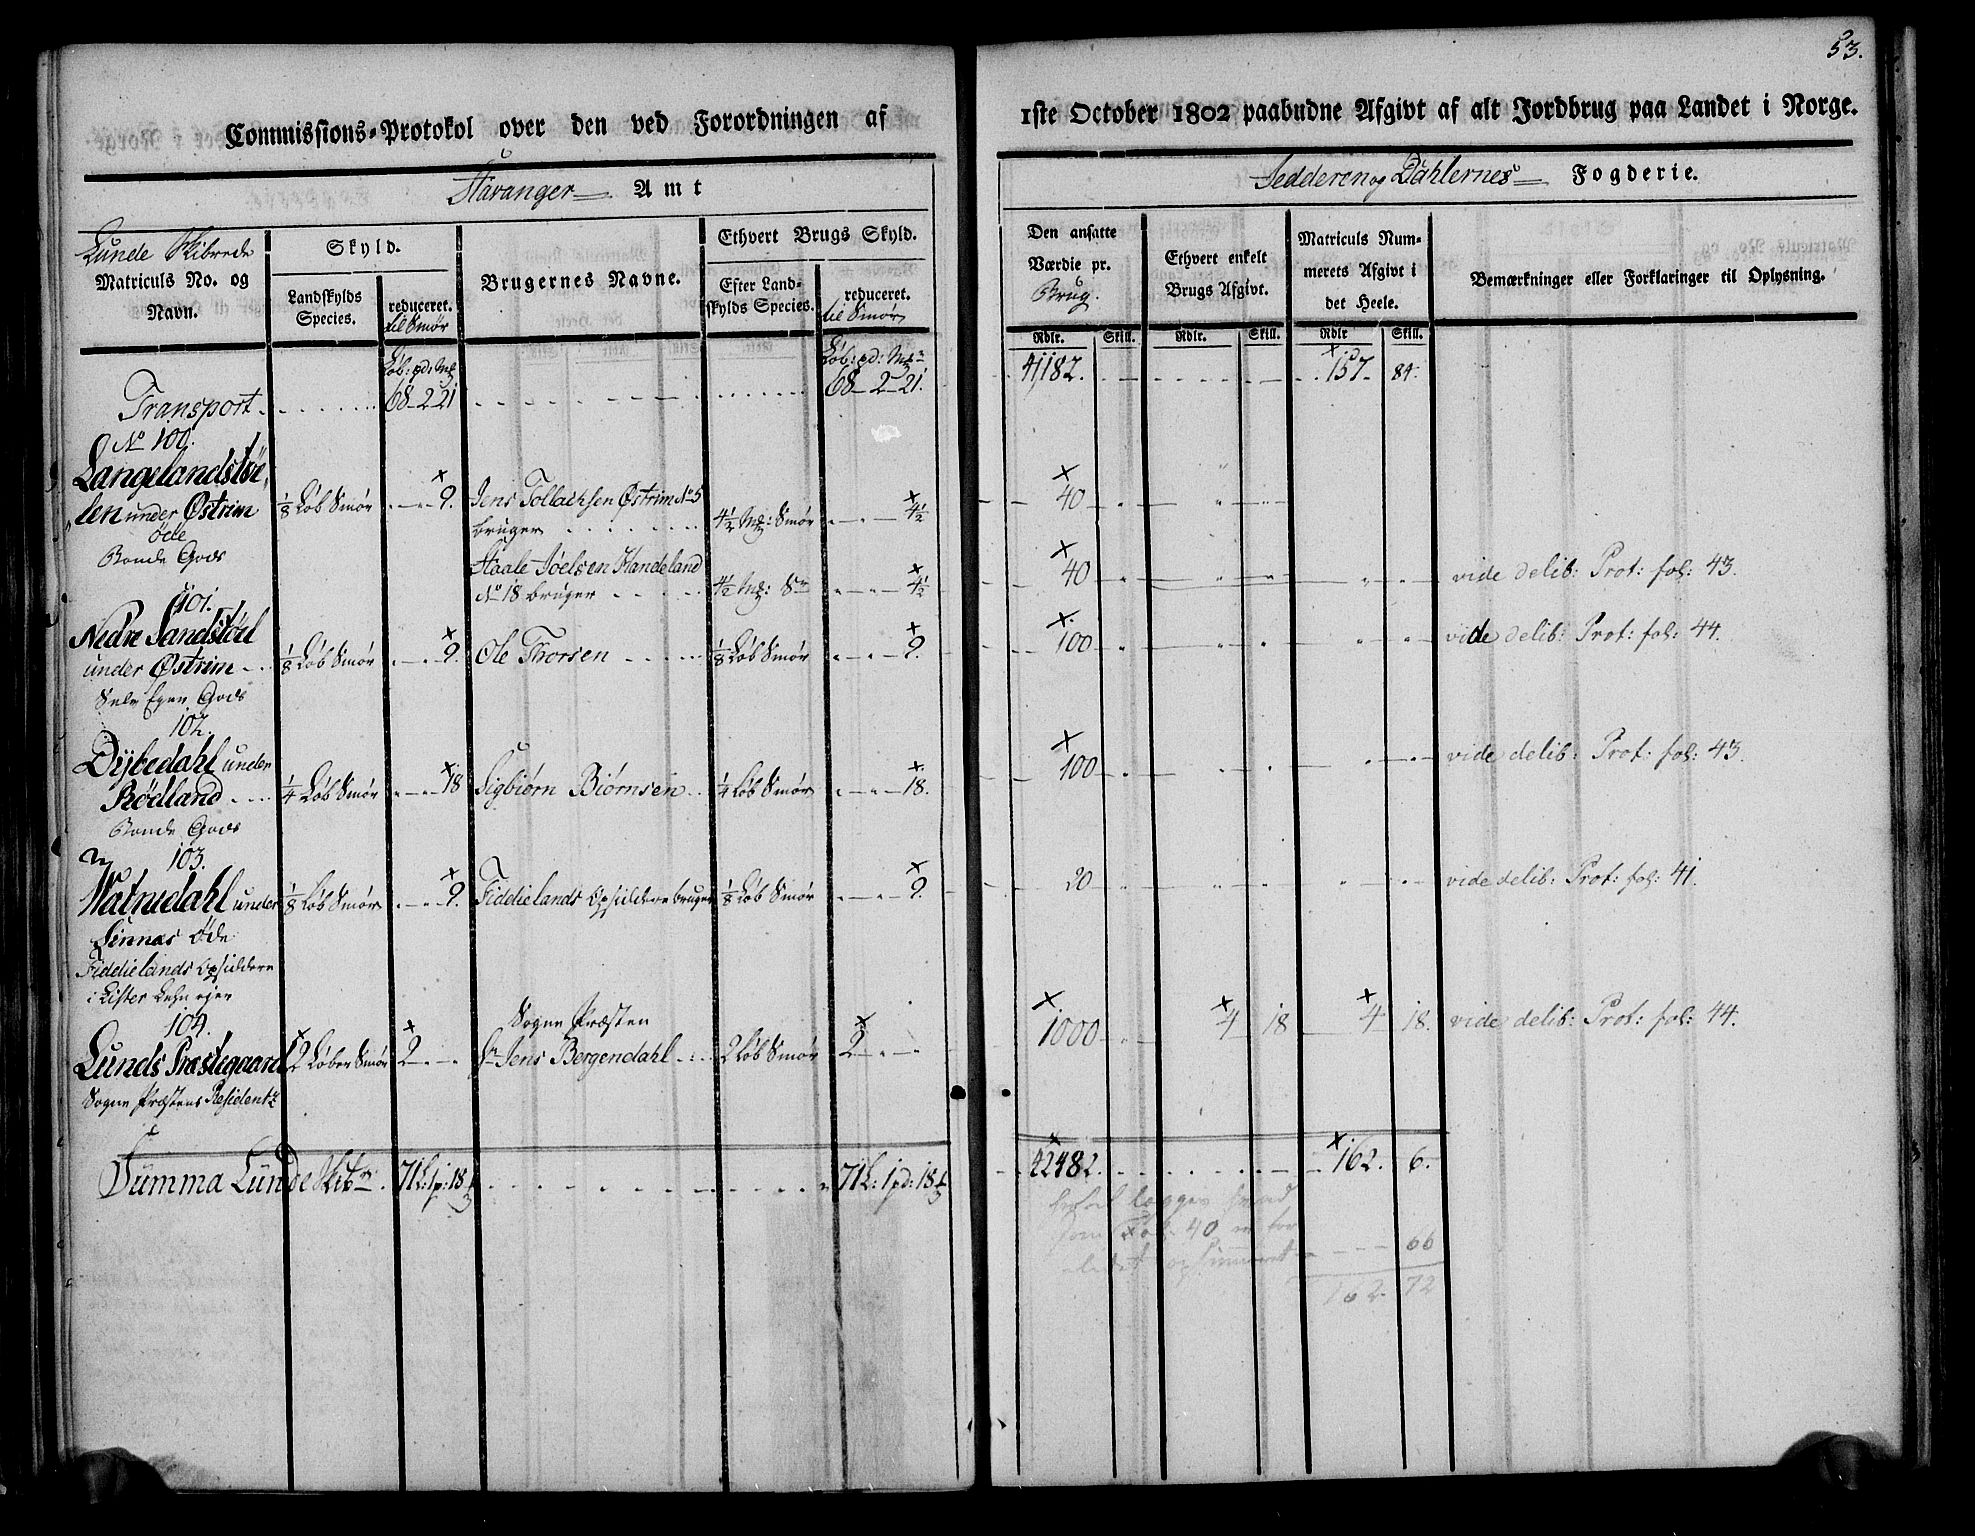 53.
Commissions-Protokol over den ved Forordningen af 1ste October 1802 paabudne Afgivt af alt Jordbrug paa Landet i Norge.
Stavanger Amt
Jedderen og Dahlernes Fogderie.
Lunde Skibrede
Matriculs No. og Navn.
Skyld.
Landskylds Species.
reduceret. til Smør
Brugernes Navne.
Ethvert Brugs Skyld.
Efter Landskylds Species.
reduceret. til Smør
Den ansatte Værdie pr. Brug.
Ethvert enkelt Brugs Afgivt.
Matriculs Nummerets Afgivt i det Heele.
Bemærkninger eller Forklaringer til Oplysning.
Rdlr. Skill. Rdlr. Skill. Rdlr Skill.
Løb: pd: Mk Løb: pd: Mk
Transport 68 - 2 - 21 68 - 2 - 21. 41182. 157 - 84.
No 100.
Langelandstøelen under Østrim 1/8 Løb Smør 9. Jens Tollachsen Østrim No 5 bruger 4 1/2 Mk: Smør 4 1/2 40
øde
Bonde Gods
Staale Joelsen Handeland No 18 bruger 4 1/2 Mk: Sm 4 1/2 40 vide delib: Prot: fol: 43.
101.
Nedre Sandstøel under Østrim 1/8 Løb Smør 9. Ole Thorsen 1/8 Løb Smør 9. 100 vide delib: Prot: fol: 44.
Selv Eyer Gods
102.
Dybedahl under Rødland 1/4 Løb Smør 18 Sigbiørn Biørnsen 1/4 Løb Smør 18. 100 vide delib: Prot: fol: 43.
Bonde Gods
103.
Watnedahl under 1/8 Løb Smør 9. Fiddielands Opsiddere bruger 1/8 Løb Smør 9. 20 vide delib: Prot: fol: 41.
Linnes Øde
Fiddielands Opsiddere
i Lister Lehn ejer
104. Sogne Præsten
Lunds Præstegaard 2 Løber Smør 2 Hr Jens Bergendahl 2 Løb Smør 2 1000 4 18 4 18. vide delib: Prot: fol: 44.
Sogne Præstens Residentz
Summa Lunde Skibr. 71 L: 1 p: 18 1/3 71 L: 1 pd: 18 1/3 42482. 162. 6.
lægges
som Fol. 40
66
162. 72